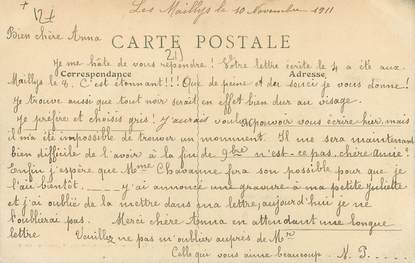 + (2+
Les Maillys le 10 Novembre 1911
Bien chère Anna
CARTE POSTALE
Je me hâte de vous répondre! Votre lettre écrite le 4 a été aux
Correspondance
21)
Adresse
Maillys le 8. C'est étonnant!!! Que de peine et de souci je vous donne!
Je trouve aussi que tout noir serait en effet bien dur au visage.
Je préfère et choisis gris! J'aurais voulu pouvoir vous écrire hier, mais
il m'a été impossible de trouver un monument. Il me sera maintenant
bien difficile de l'avoir à la fin de 9bre n'est-ce pas, chère Amie!
Enfin j'espère que Mme Chavanne fera son possible pour que je
l'aie bientôt. ____ j'ai annoncé une gravure à ma petite Juliette
et j'ai oublié de la mettre dans ma lettre, aujourd'hui je ne
l'oublierai pas. Merci chère Anna en attendant une longue
lettre. Veuillez ne pas m'oublier auprès de Mr
Celle qui vous aime beaucoup N. P.